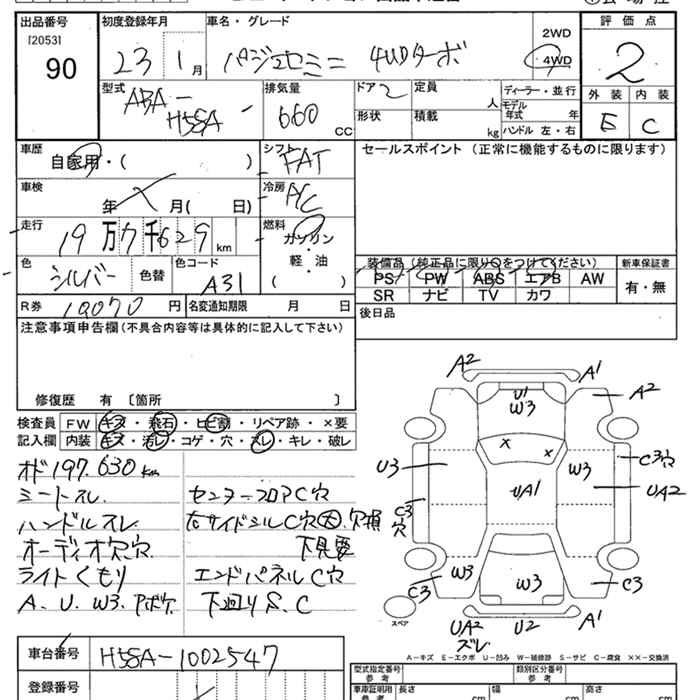 出品番号 初度登録年月 車名・グレード 評価点
[2053]
90
23 1月 パジェロミニ 4WDターボ 2WD 4WD 2
型式 ABA-H58A 排気量 660 CC ドア 2 定員 人 ディーラー・並行 外装 内装
形状 積載 kg モデル年式 年 E C
ハンドル 左・右
車歴 自家用・( ) シフト FAT セールスポイント(正常に機能するものに限ります)
車検 年 月( 日) 冷房 AC
走行 19万7千629km 燃料 ガソリン
軽・油
( )
色 シルバー 色替 色コード A31 装備品(純正品に限り○をつけてください) 新車保証書
PS PW ABS エアB AW 有・無
SR ナビ TV カワ
R券 10070円 名変通知期限 月 日 後日品
注意事項申告欄(不具合内容等は具体的に記入して下さい)
修復歴 有 〔箇所 〕
検査員 FW キズ・飛石・ヒビ割・リペア跡・×要
記入欄 内装 キズ・汚レ・コゲ・穴・スレ・キレ・破レ
オド197.630km
ミートスレ センターフロアC穴
ハンドルスレ 右サイドシルC穴大.欠損
オーディオ欠.穴 下見要
ライトくもり エンドパネルC穴
A.U.W3.Pボケ 下廻りS.C
A2 A1
A2
U1
W3
U3 W3 C3穴
UA1 UA2
C3穴
W3 C3 W3 C3
スペア UA2 U2 A1
ズレ
A-キズ E-エクボ U-凹み W-補修跡 S-サビ C-腐食 ××-交換済
車台番号 H58A-1002547
登録番号
型式指定番号 参考 類別区分番号 参考
車庫証明用 参考 長さ cm 幅 cm 高さ cm